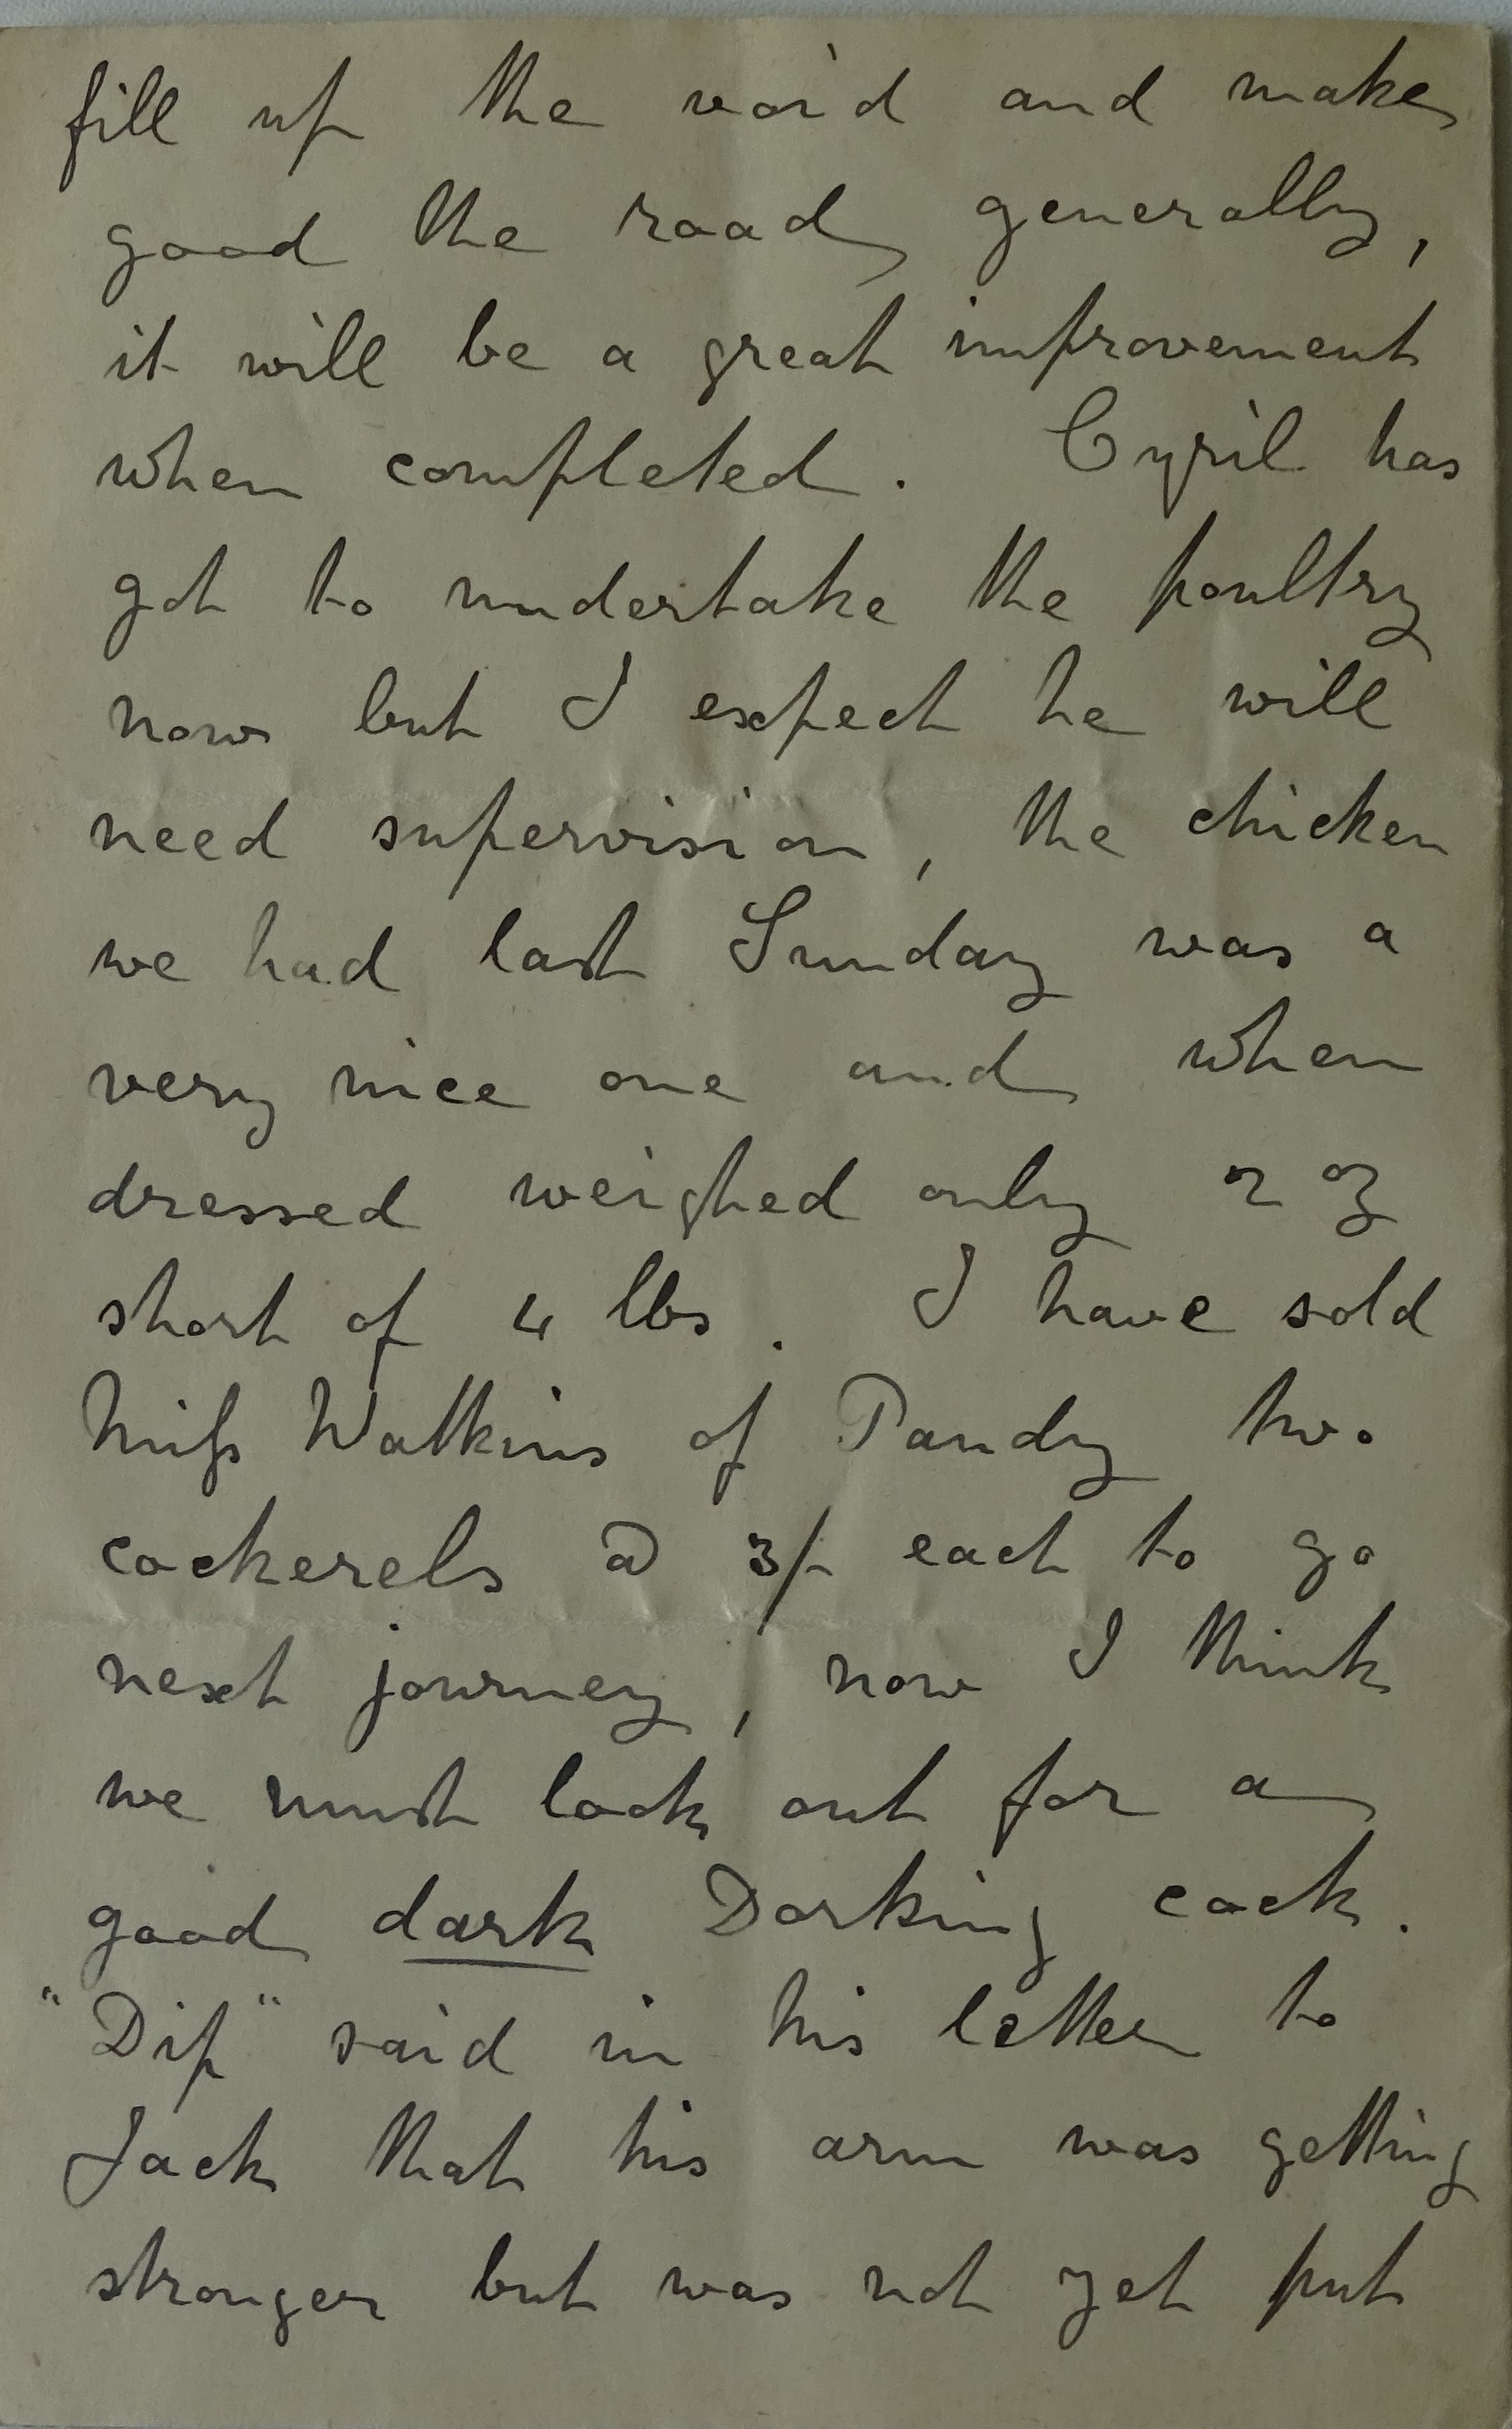 fill up the void and make
good the road generally,
it will be a great improvement
when completed. Cyril has
got to undertake the poultry
now but I expect he will
need supervision, the chicken
we had last Sunday was a
very nice one and when
dressed weighed only 2 oz
short of 4 lbs. I have sold
Miſs Watkins of Pandy two
cockerels @ 3/- each to go
next journey, now I think
we must look out for a
good dark Dorking cock.
"Dip" said in his letter to
Jack that his arm was getting
stronger but was not yet put